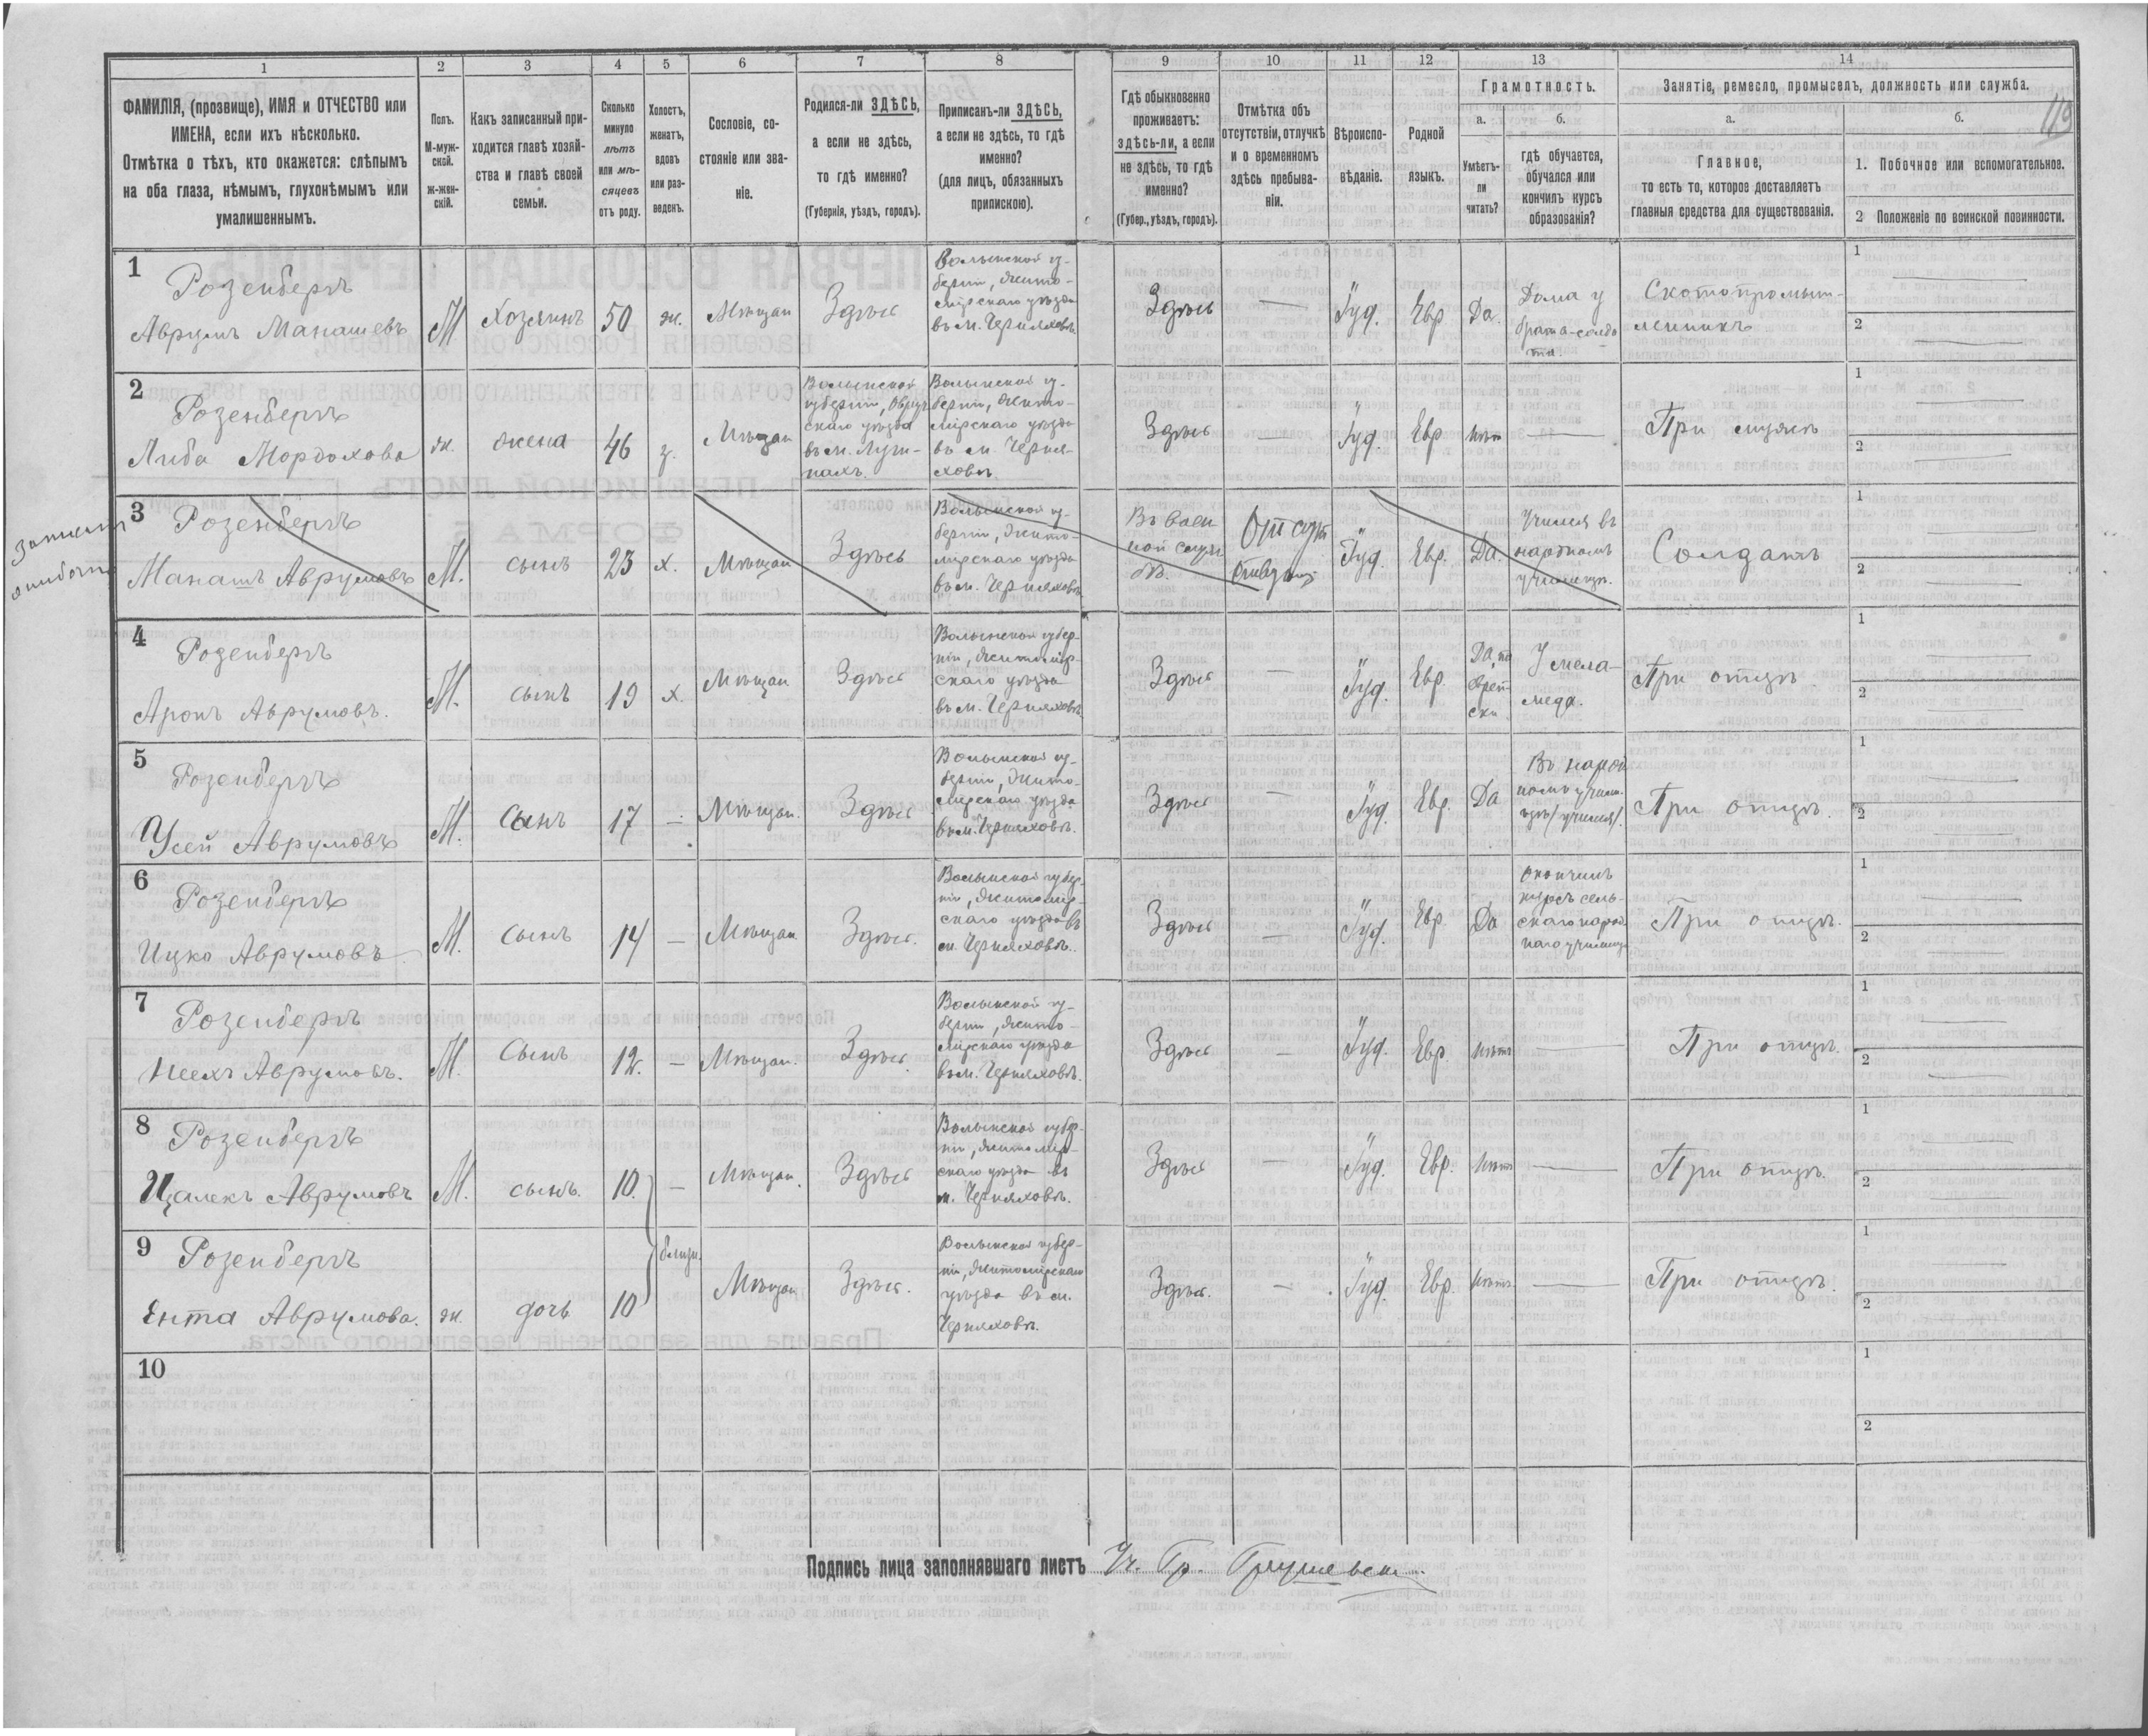 119
1 2 3 4 5 6 7 8 9 10 11 12 13 14
ФАМИЛІЯ, (прозвище), ИМЯ и ОТЧЕСТВО или
ИМЕНА, если ихъ нѣсколько.
Отмѣтка о тѣхъ, кто окажется: слѣпымъ
на оба глаза, нѣмымъ, глухонѣмымъ или
умалишеннымъ.
Полъ.
М-муж-
ской.
ж-жен-
скій.
Какъ записанный при-
ходится главѣ хозяй-
ства и главѣ своей
семьи.
Сколько
минуло
лѣтъ
или мѣ-
сяцевъ
отъ роду.
Холостъ,
женатъ,
вдовъ
или раз-
веденъ.
Сословіе, со-
стояніе или зва-
ніе.
Родился-ли ЗДѢСЬ,
а если не здѣсь,
то гдѣ именно?
(Губернія, уѣздъ, городъ).
Приписанъ-ли ЗДѢСЬ,
а если не здѣсь, то гдѣ
именно?
(для лицъ, обязанныхъ
припискою).
Гдѣ обыкновенно
проживаетъ:
здѣсь-ли, а если
не здѣсь, то гдѣ
именно?
(Губер., уѣздъ, городъ).
Отмѣтка объ
отсутствіи, отлучкѣ
и о временномъ
здѣсь пребыва-
ніи.
Вѣроиспо-
вѣданіе.
Родной
языкъ.
Грамотность.
а.
Умѣетъ-
ли
читать?
б.
гдѣ обучается,
обучался или
кончилъ курсъ
образованія?
Занятіе, ремесло, промыселъ, должность или служба.
а.
Главное,
то есть то, которое доставляетъ
главныя средства для существованія.
б.
1. Побочное или вспомогательное.
2 Положеніе по воинской повинности.
1
Розенбергъ
Аврумъ Манашевъ
М
Хозяинъ
50
ж.
Мѣщан
Здѣсь
Волынской гу-
берніи, Жито-
мірскаго уѣзда
въ м. Черняховѣ
Здѣсь
—
Іуд.
Евр
Да.
Дома у
брата-солда
та.
Скотопромыш-
ленникъ
1
2
2
Розенбергъ
Либа Мордохова
ж.
жена
46
з.
Мѣщан
Волынской
губерніи, Овруч
скаго уѣзда
въ м. Луги-
нахъ.
Волынской гу-
берніи, Жито-
мірскаго уѣзда
въ м. Черня-
ховѣ.
Здѣсь
—
Іуд.
Евр
Нѣт
—
При мужѣ
1
2
3
Розенбергъ
Манашъ Аврумовъ
М.
сынъ
23
х.
Мѣщан
Здѣсь
Волынской гу-
берніи, Жито-
мірскаго уѣзда
въ м. Черняховѣ
Въ воен
ной служ
бѣ.
Іуд.
Евр.
Да.
Учился въ
народномъ
училищѣ.
Солдатъ
1
2
4
Розенбергъ
Аронъ Аврумовъ.
М.
сынъ
19
х.
Мѣщан
Здѣсь
Волынской губер-
ніи, Житомір-
скаго уѣзда
въ м. Черняховѣ.
Здѣсь
—
Іуд.
Евр.
Да, по
еврей-
ски.
У мела-
меда.
При отцѣ.
1
2
5
Розенбергъ
Усей Аврумовъ
М.
Сынъ
17
—
Мѣщан.
Здѣсь
Волынской гу-
берніи, Жито-
мірскаго уѣзда
въ м. Черняховѣ.
Здѣсь
—
Іуд.
Евр.
Да
Въ народ
номъ учили-
щѣ (учился).
При отцѣ.
1
2
6
Розенбергъ
Ицко Аврумовъ.
М.
сынъ
14
—
Мѣщан
Здѣсь.
Волынской губер-
ніи, Житомір-
скаго уѣзда въ
м. Черняховѣ.
Здѣсь
—
Іуд.
Евр.
Да
Окончилъ
курсъ сель-
скаго народ
наго училища
При отцѣ.
1
2
7
Розенбергъ
Аврумовъ.
М.
Сынъ
12.
—
Мѣщан.
Здѣсь.
Волынской гу-
берніи, Жито-
мірскаго уѣзда
въ м. Черняховѣ.
Здѣсь
—
Іуд.
Евр.
Нѣтъ
—
При отцѣ.
1
2
8
Розенбергъ
Цалекъ Аврумовъ
М.
сынъ.
10.
—
Мѣщан.
Здѣсь
Волынской губер-
ніи, Житомір-
скаго уѣзда въ
м. Черняховѣ.
Здѣсь
—
Іуд.
Евр.
Нѣтъ
—
При отцѣ.
1
2
9
Розенбергъ
Ента Аврумова.
ж.
дочь
10
близн.
Мѣщан
Здѣсь.
Волынской губер-
ніи, Житомірскаго
уѣзда въ м.
Черняховѣ.
Здѣсь.
—
Іуд.
Евр.
Нѣтъ
—
При отцѣ.
1
2
10
1
2
Подпись лица заполнявшаго листъ